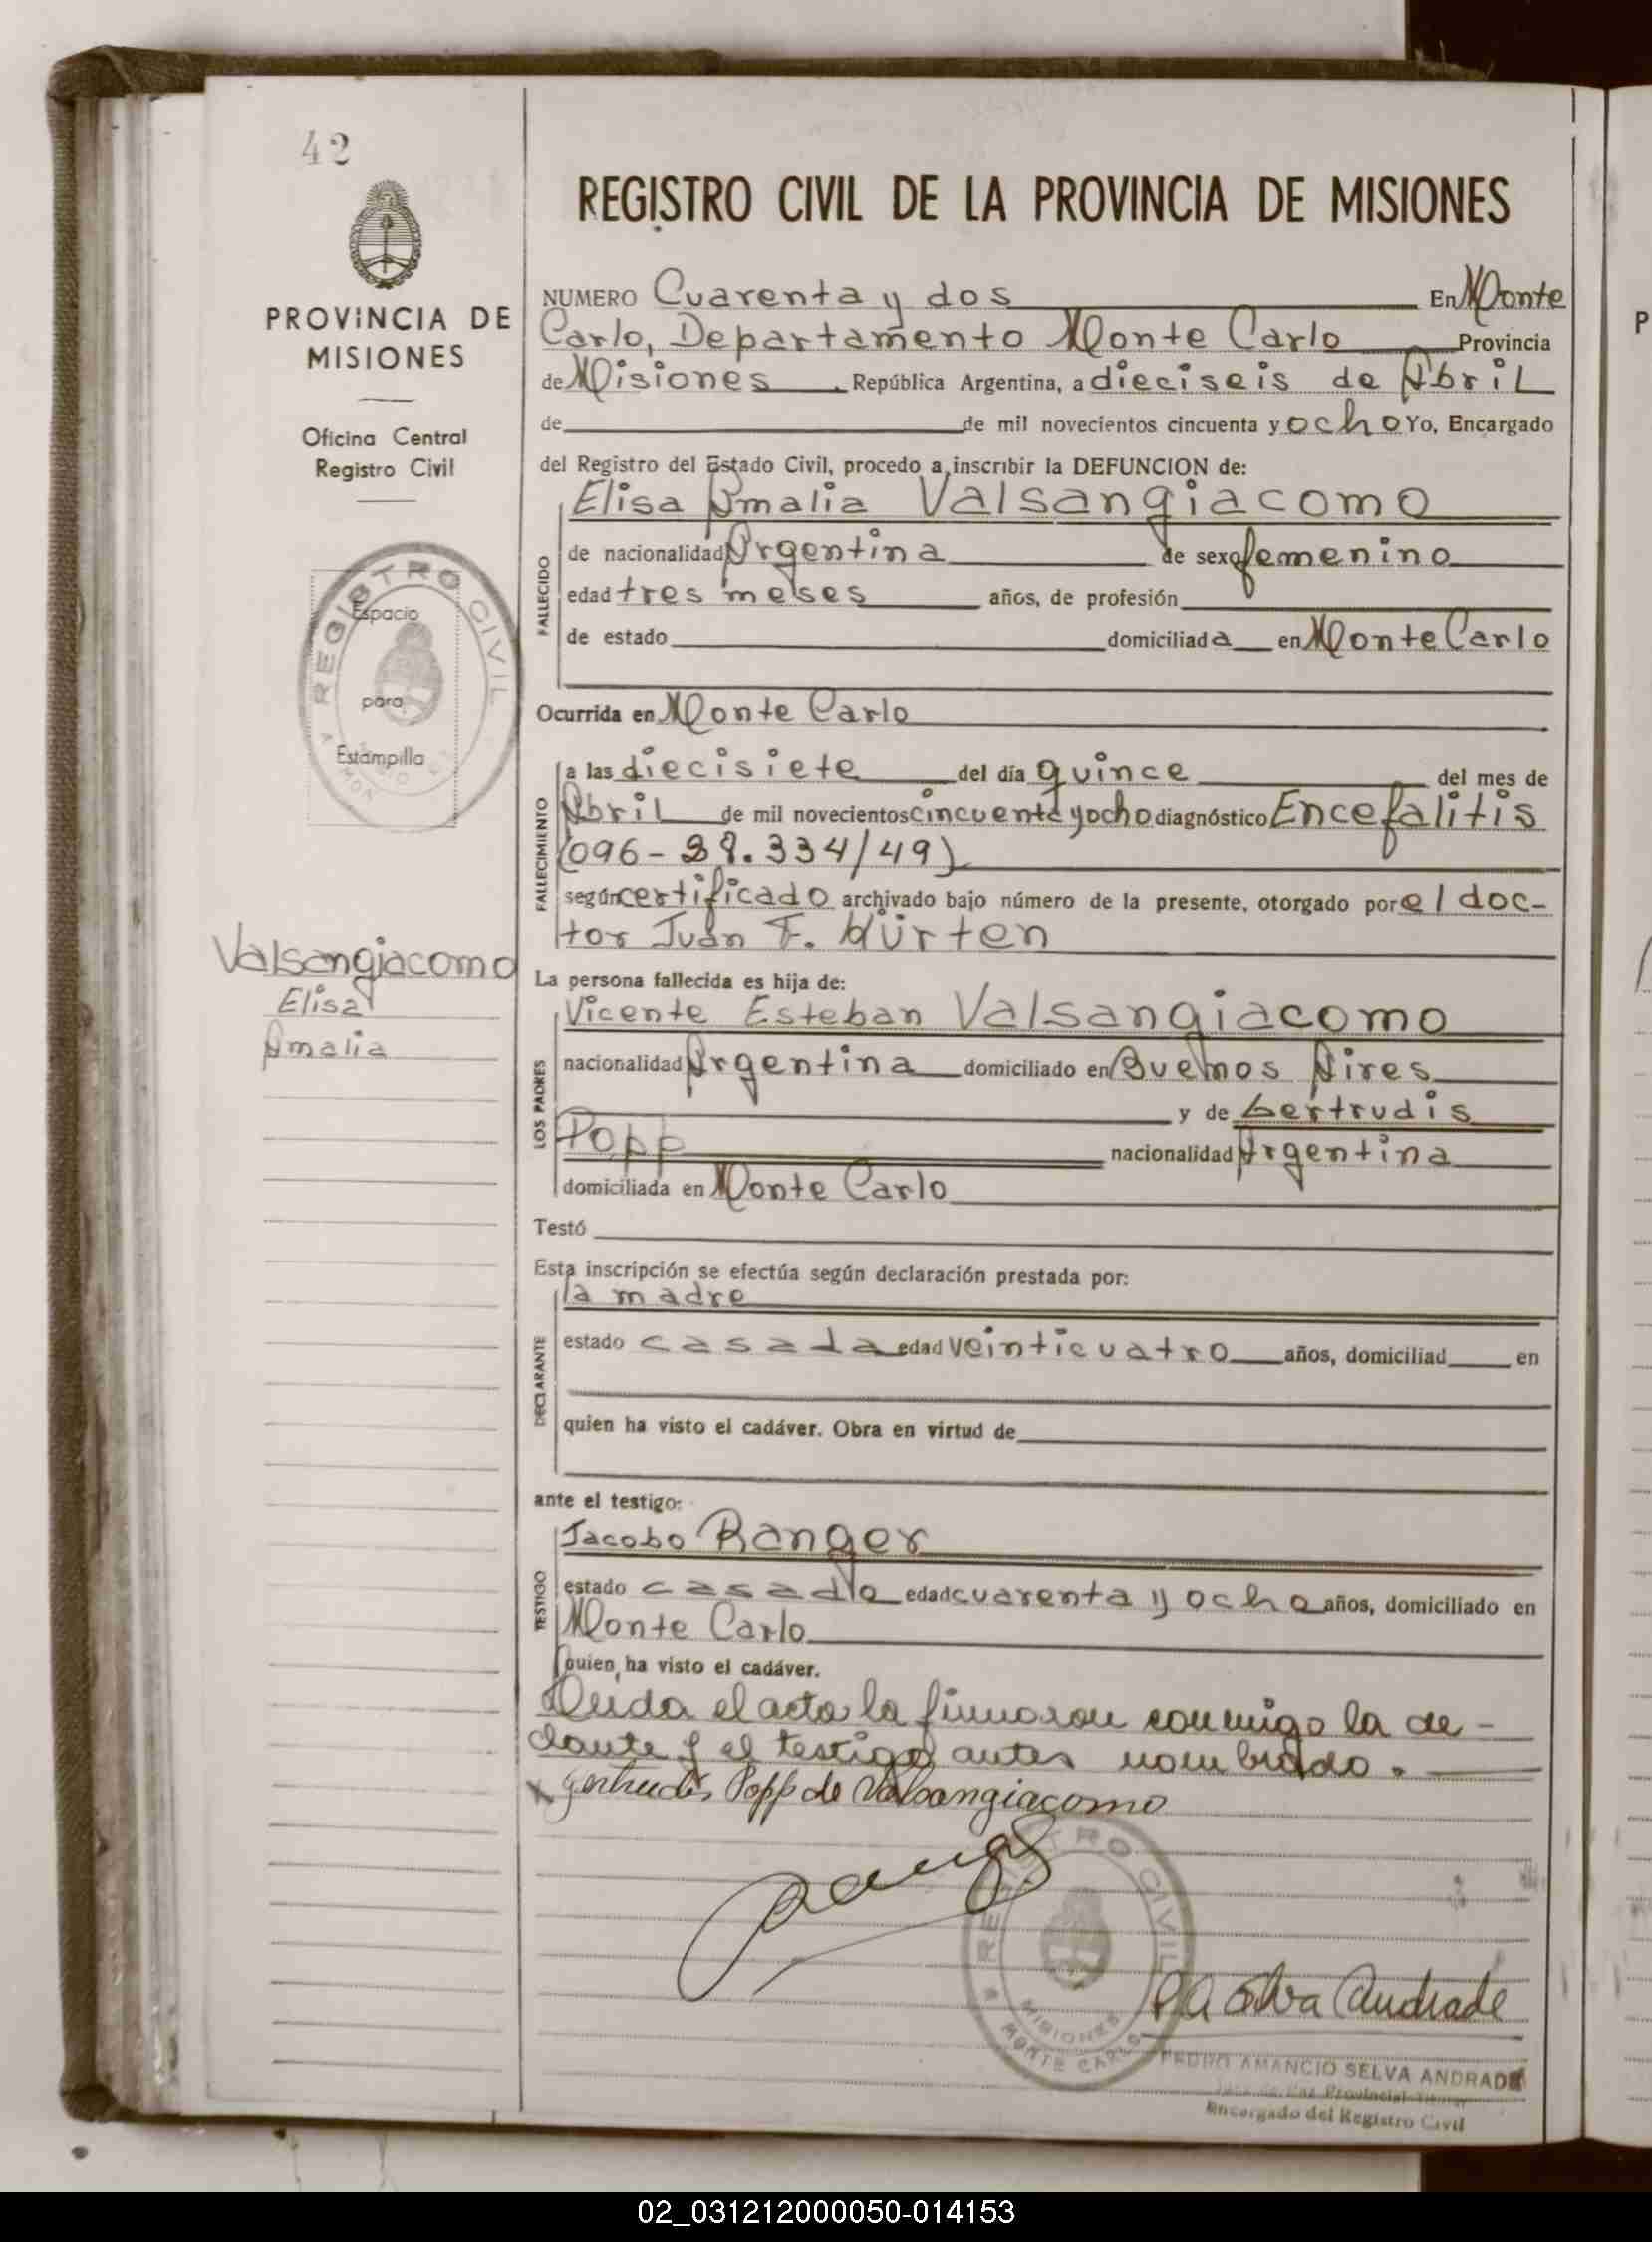 42
PROVINCIA DE
MISIONES
Oficina Central
Registro Civil
REGISTRO CIVIL
Espacio
para
Estampilla
Valsangiacomo
Elisa
Amalia
REGISTRO CIVIL DE LA PROVINCIA DE MISIONES
NUMERO Cuarenta y dos En Monte
Carlo, Departamento Monte Carlo Provincia
de Misiones República Argentina, a dieciseis de Abril
de de mil novecientos cincuenta y ocho Yo, Encargado
del Registro del Estado Civil, procedo a inscribir la DEFUNCION de:
FALLECIDO
Elisa Amalia Valsangiacomo
de nacionalidad Argentina de sexo femenino
edad tres meses años, de profesión
de estado domiciliada en Monte Carlo
Ocurrida en Monte Carlo
FALLECIMIENTO
a las diecisiete del día quince del mes de
Abril de mil novecientos cincuenta y ocho diagnóstico Encefalitis
(096-28.334/49)
según certificado archivado bajo número de la presente, otorgado por el doc-
tor Juan F. Hürten
La persona fallecida es hija de:
LOS PADRES
Vicente Esteban Valsangiacomo
nacionalidad Argentina domiciliado en Buenos Aires
y de Gertrudis
Popp nacionalidad Argentina
domiciliada en Monte Carlo
Testó
Esta inscripción se efectúa según declaración prestada por:
DECLARANTE
la madre
estado casada edad veinticuatro años, domiciliad en
quien ha visto el cadáver. Obra en virtud de
ante el testigo:
TESTIGO
Jacobo Ranger
estado casado edad cuarenta y ocho años, domiciliado en
Monte Carlo
quien ha visto el cadáver.
Leida el acta la firmaron conmigo la de-
clarante y el testigo antes nombrado.
Gertrudis Popp de Valsangiacomo
REGISTRO CIVIL
MISIONES
MONTE CARLO
P A Selva Andrade
PEDRO AMANCIO SELVA ANDRADE
Juez de Paz Provincial Titular
Encargado del Registro Civil
02_031212000050-014153